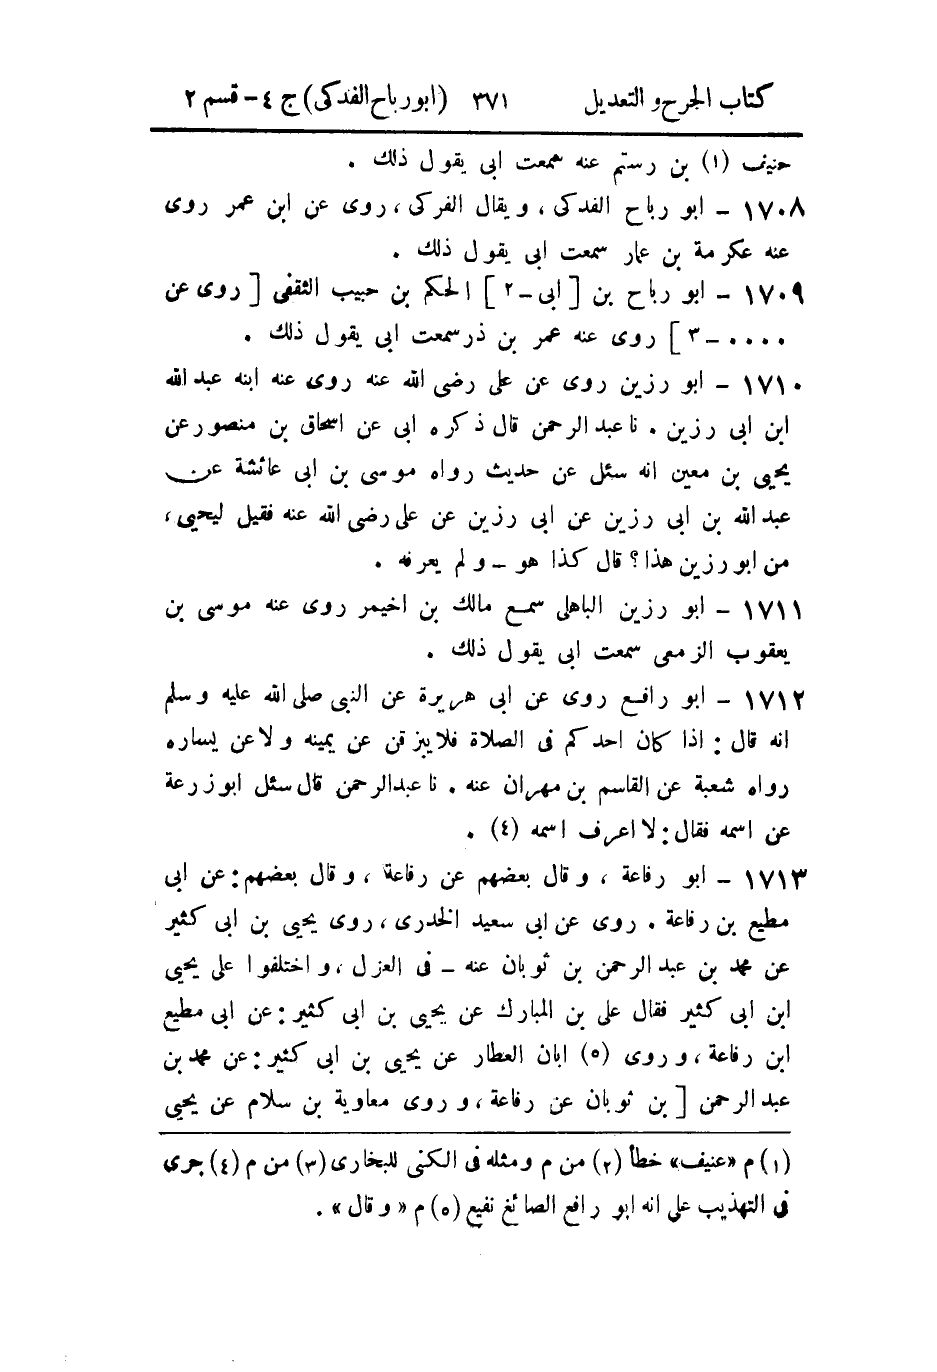 كتاب الجرح والتعديل ٣٧١ (ابو رباح الفدكى) ج ٤ - قسم ٢
حنيف (١) بن رستم عنه سمعت ابى يقول ذلك .
١٧٠٨ - ابو رباح الفدكى ، ويقال الفركى ، روى عن ابن عمر روى
عنه عكرمة بن عمار سمعت ابى يقول ذلك .
١٧٠٩ - ابو رباح بن [ ابى - ٢ ] الحكم بن حبيب الثقفى [ روى عن
.... - ٣ ] روى عنه عمر بن ذر سمعت ابى يقول ذلك .
١٧١٠ - ابو رزين روى عن على رضى الله عنه روى عنه ابنه عبد الله
ابن ابى رزين . نا عبد الرحمن قال ذكره ابى عن اسحاق بن منصور عن
يحيى بن معين انه سئل عن حديث رواه موسى بن ابى عائشة عن
عبد الله بن ابى رزين عن ابى رزين عن على رضى الله عنه فقيل ليحيى ،
من ابو رزين هذا ؟ قال كذا هو - ولم يعرفه .
١٧١١ - ابو رزين الباهلى سمع مالك بن اخيمر روى عنه موسى بن
يعقوب الزمعى سمعت ابى يقول ذلك .
١٧١٢ - ابو رافع روى عن ابى هريرة عن النبى صلى الله عليه وسلم
انه قال : اذا كان احدكم فى الصلاة فلا يبزقن عن يمينه ولا عن يساره
رواه شعبة عن القاسم بن مهران عنه . نا عبدالرحمن قال سئل ابو زرعة
عن اسمه فقال : لا اعرف اسمه (٤) .
١٧١٣ - ابو رفاعة ، وقال بعضهم عن رفاعة ، وقال بعضهم : عن ابى
مطيع بن رفاعة . روى عن ابى سعيد الخدرى ، روى يحيى بن ابى كثير
عن محمد بن عبد الرحمن بن ثوبان عنه - فى العزل ، واختلفوا على يحيى
ابن ابى كثير فقال على بن المبارك عن يحيى بن ابى كثير : عن ابى مطيع
ابن رفاعة ، وروى (٥) ابان العطار عن يحيى بن ابى كثير : عن محمد بن
عبد الرحمن [ بن ثوبان عن رفاعة ، وروى معاوية بن سلام عن يحيى
(١) م «عنيف» خطأ (٢) من م ومثله فى الكنى للبخارى (٣) من م (٤) جرى
فى التهذيب على انه ابو رافع الصائغ نفيع (٥) م « وقال » .